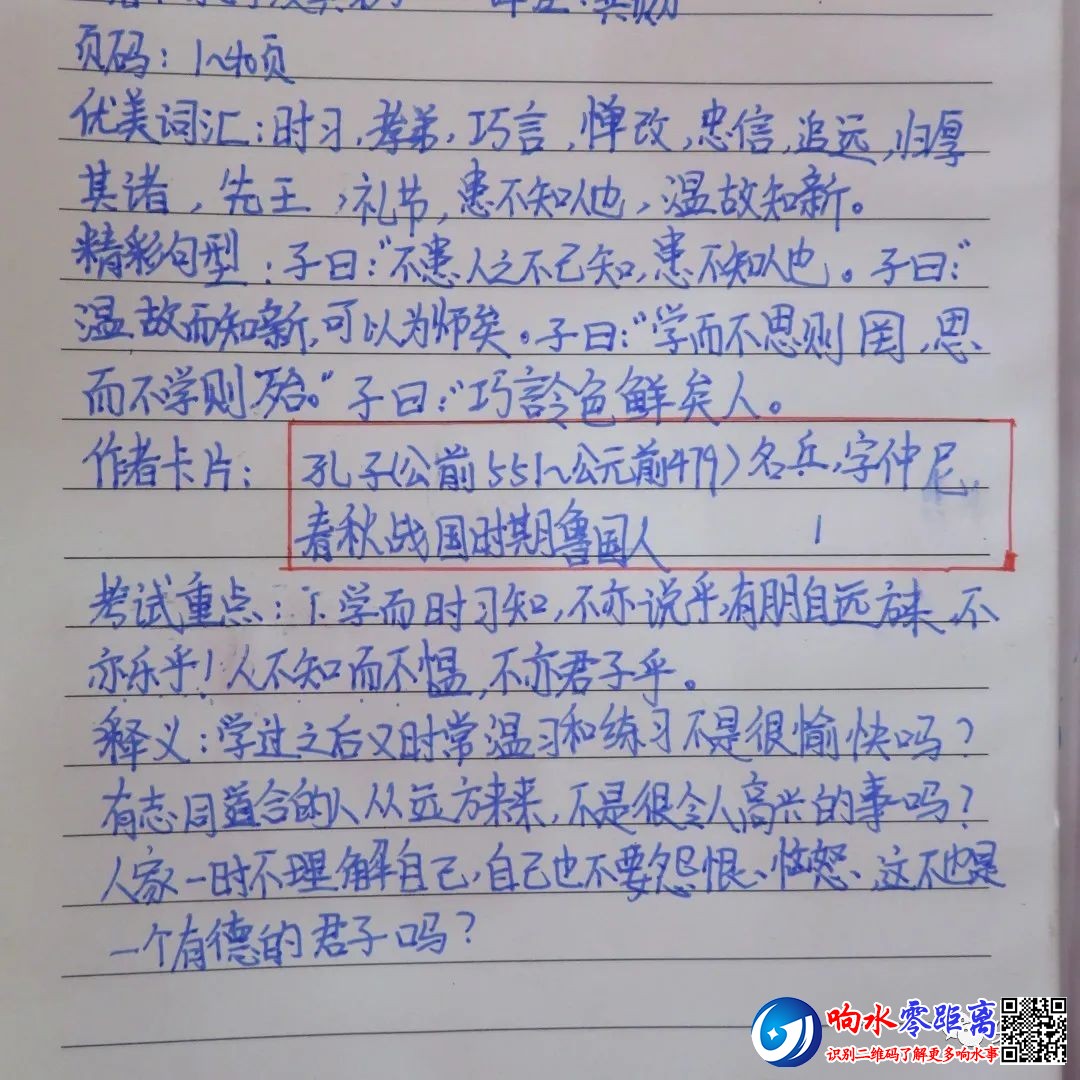 页码：1~40页
优美词汇：时习，孝弟，巧言，惮改，忠信，追远，归厚
其诸，先王，礼节，患不知人也，温故知新。
精彩句型：子曰：“不患人之不己知，患不知人也。子曰：“
温故而知新，可以为师矣。子曰：“学而不思则罔，思
而不学则殆。”子曰：“巧言令色鲜矣人。
作者卡片：孔子（公前551~公元前479）名丘，字仲尼，
春秋战国时期鲁国人
考试重点：1.学而时习知，不亦说乎，有朋自远方来，不
亦乐乎！人不知而不愠，不亦君子乎。
释义：学过之后又时常温习和练习不是很愉快吗？
有志同道合的人从远方来来，不是很令人高兴的事吗？
人家一时不理解自己，自己也不要怨恨、恼怒、这不也是
一个有德的君子吗？
响水零距离
识别二维码了解更多响水事